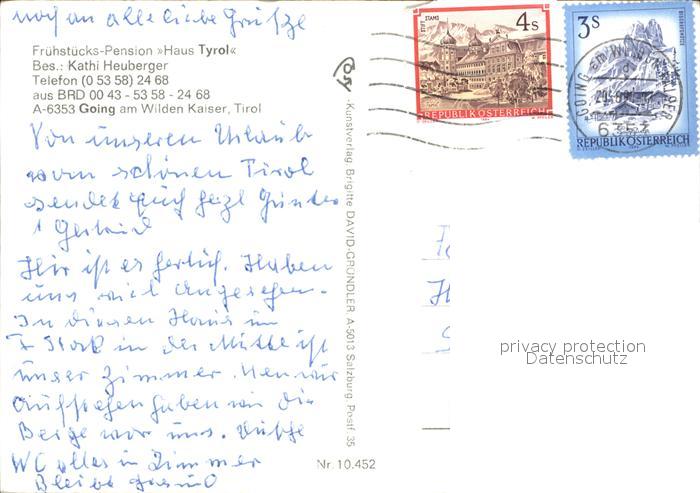 noch an alle liebe Grüße
Frühstücks-Pension »Haus Tyrol«
Bes.: Kathi Heuberger
Telefon (0 53 58) 24 68
aus BRD 00 43 - 53 58 - 24 68
A-6353 Going am Wilden Kaiser, Tirol
Von unseren Urlaub
vom schönen Tirol
sendet Euch herzl Günter
Hir ist es herlich. Haben
uns viel angesehen.
In diesen Haus im
Stock in der Mitte ist
unser Zimmer. Wen wir
Aufstehen haben wir die
Berge vor uns.
WC alles in Zimmer
Bleibt gesund
Kunstverlag Brigitte DAVID-GRÜNDLER A-5013 Salzburg, Postf. 35
Nr. 10.452
STIFT STAMS
4 S
REPUBLIK ÖSTERREICH
3 S
REPUBLIK ÖSTERREICH
privacy protection
Datenschutz